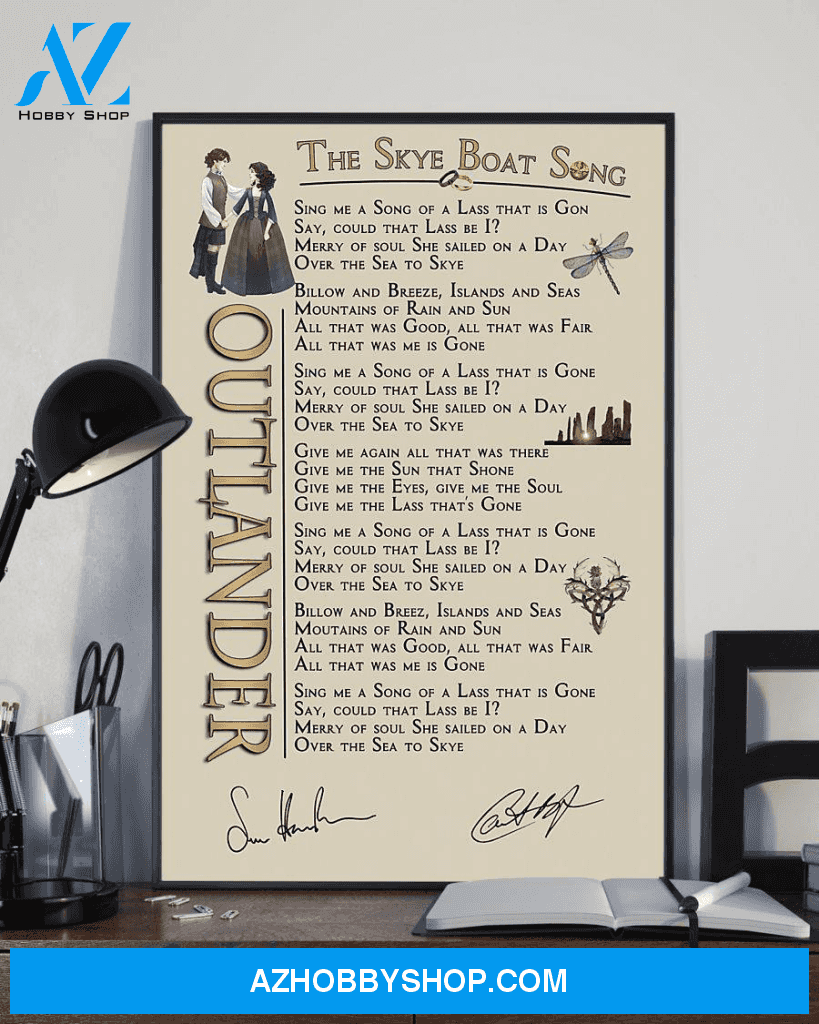 AZ
Hobby Shop
The Skye Boat Song
Sing me a Song of a Lass that is Gon
Say, could that Lass be I?
Merry of soul She sailed on a Day
Over the Sea to Skye
Billow and Breeze, Islands and Seas
Mountains of Rain and Sun
All that was Good, all that was Fair
All that was me is Gone
Sing me a Song of a Lass that is Gone
Say, could that Lass be I?
Merry of soul She sailed on a Day
Over the Sea to Skye
Give me again all that was there
Give me the Sun that Shone
Give me the Eyes, give me the Soul
Give me the Lass that's Gone
Sing me a Song of a Lass that is Gone
Say, could that Lass be I?
Merry of soul She sailed on a Day
Over the Sea to Skye
Billow and Breez, Islands and Seas
Moutains of Rain and Sun
All that was Good, all that was Fair
All that was me is Gone
Sing me a Song of a Lass that is Gone
Say, could that Lass be I?
Merry of soul She sailed on a Day
Over the Sea to Skye
OUTLANDER
AZHOBBYSHOP.COM